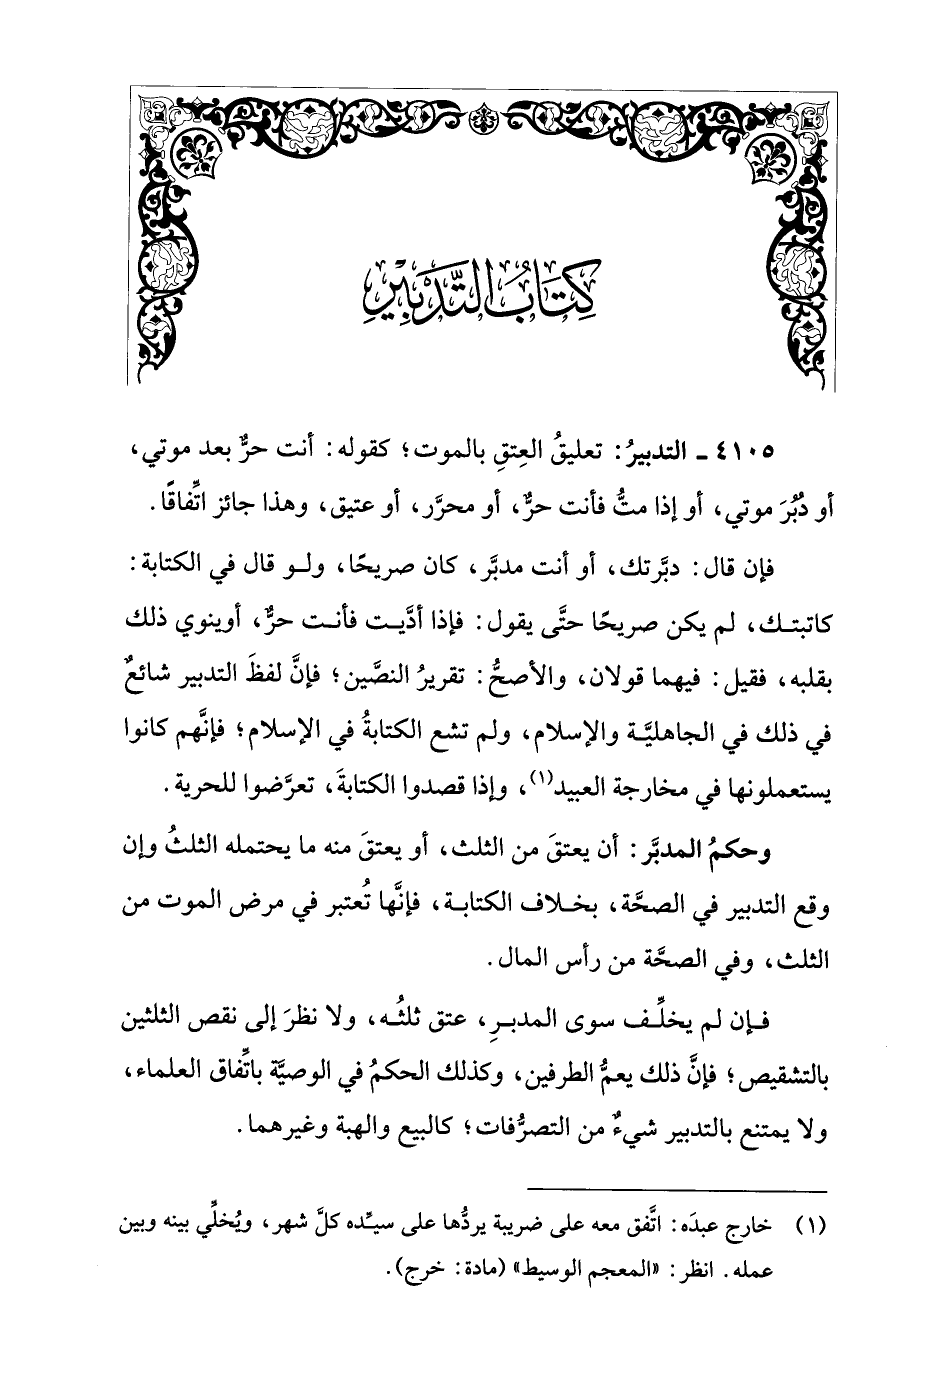 كِتَابُ التَّدْبِيْرِ
٤١٠٥ - التدبيرُ: تعليقُ العِتقِ بالموت؛ كقوله: أنت حرٌّ بعد موتي،
أو دُبُرَ موتي، أو إذا متُّ فأنت حرٌّ، أو محرَّر، أو عتيق، وهذا جائز اتِّفاقًا.
فإن قال: دبَّرتك، أو أنت مدبَّر، كان صريحًا، ولو قال في الكتابة:
كاتبتك، لم يكن صريحًا حتَّى يقول: فإذا أدَّيت فأنت حرٌّ، أوينوي ذلك
بقلبه، فقيل: فيهما قولان، والأصحُّ: تقريرُ النصَّين؛ فإنَّ لفظَ التدبير شائعٌ
في ذلك في الجاهليَّة والإسلام، ولم تشع الكتابةُ في الإسلام؛ فإنَّهم كانوا
يستعملونها في مخارجة العبيد(١)، وإذا قصدوا الكتابةَ، تعرَّضوا للحرية.
وحكمُ المدبَّر: أن يعتقَ من الثلث، أو يعتقَ منه ما يحتمله الثلثُ وإن
وقع التدبير في الصحَّة، بخلاف الكتابة، فإنَّها تُعتبر في مرض الموت من
الثلث، وفي الصحَّة من رأس المال.
فإن لم يخلِّف سوى المدبرِ، عتق ثلثُه، ولا نظرَ إلى نقص الثلثين
بالتشقيص؛ فإنَّ ذلك يعمُّ الطرفين، وكذلك الحكمُ في الوصيَّة باتِّفاق العلماء،
ولا يمتنع بالتدبير شيءٌ من التصرُّفات؛ كالبيع والهبة وغيرهما.
(١) خارج عبدَه: اتَّفق معه على ضريبة يردُّها على سيِّده كلَّ شهر، ويُخلِّي بينه وبين
عمله. انظر: «المعجم الوسيط» (مادة: خرج).